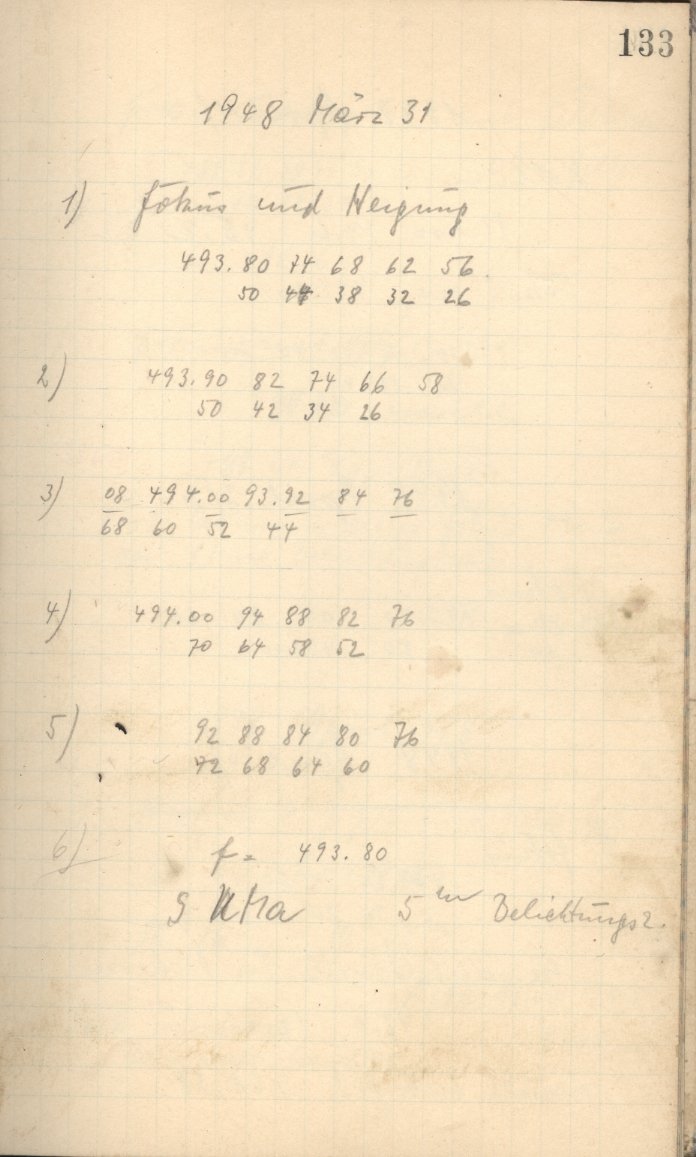 133
1948 März 31
1) Fokus und Neigung
493.80 74 68 62 56
50 44 38 32 26
2) 493.90 82 74 66 58
50 42 34 26
3) 08 494.00 93.92 84 76
68 60 52 44
4) 494.00 94 88 82 76
70 64 58 52
5) 92 88 84 80 76
72 68 64 60
6) f = 493.80
S UMa 5 m Belichtungsz.